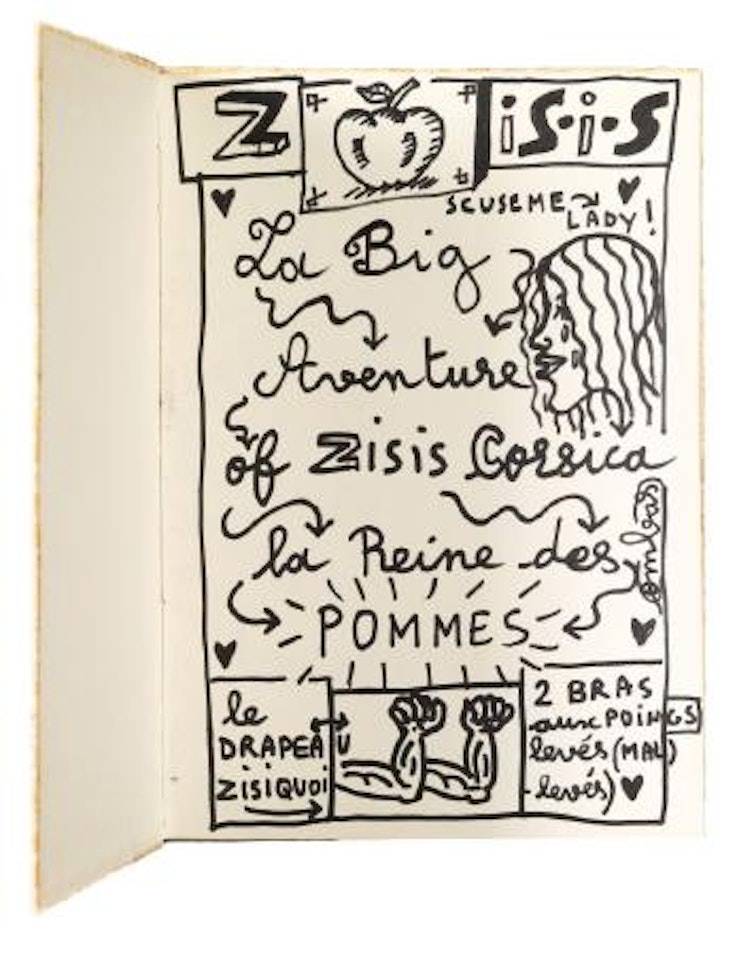 Z isis
SCUSEME
LADY!
La Big
Aventure
of Zisis Corsica
la Reine des
combas
POMMES
le
DRAPEAU
ZISIQUOI
2 BRAS
aux POINGS
levés (MAL)
levés)